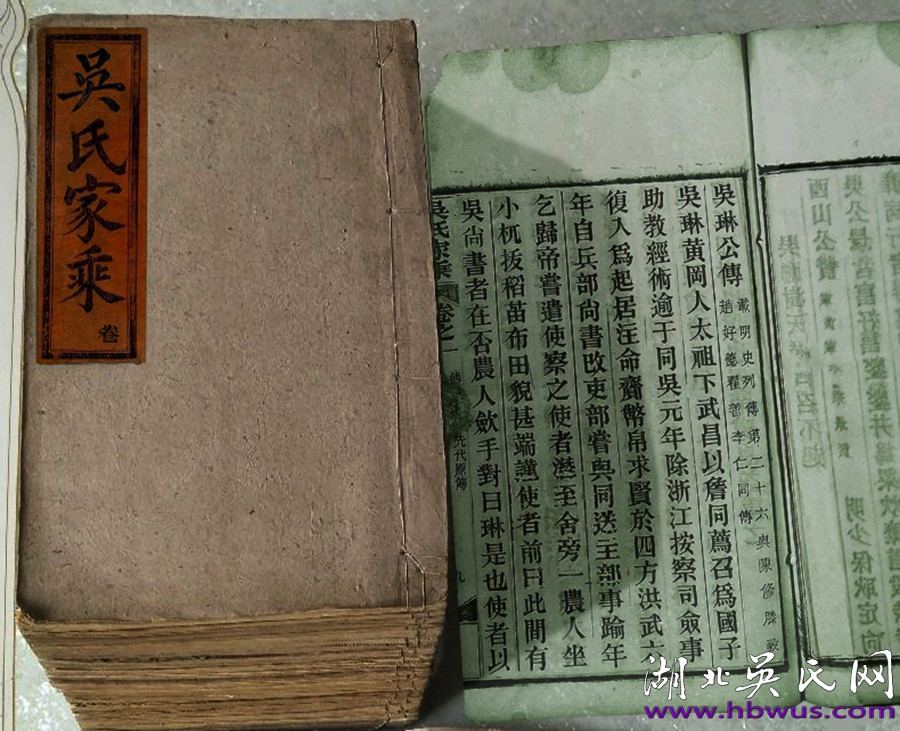 吳氏家乘
卷
吳琳公傳
載明史列傳第二十六與陳修滕毅
趙好德翟善李仁同傳
吳琳黃岡人太祖下武昌以詹同薦召爲國子
助教經術逾于同吳元年除浙江按察司僉事
復入爲起居注命齎幣帛求賢於四方洪武六
年自兵部尚書改吏部嘗與同迭主部事踰年
乞歸帝嘗遣使察之使者潛至舍旁一農人坐
小杌拔稻苗布田貌甚端謹使者前曰此間有
吳尚書者在否農人斂手對曰琳是也使者以
吳氏家乘
卷之一
先代原傳
九
湖北吳氏网
www.hbwus.com